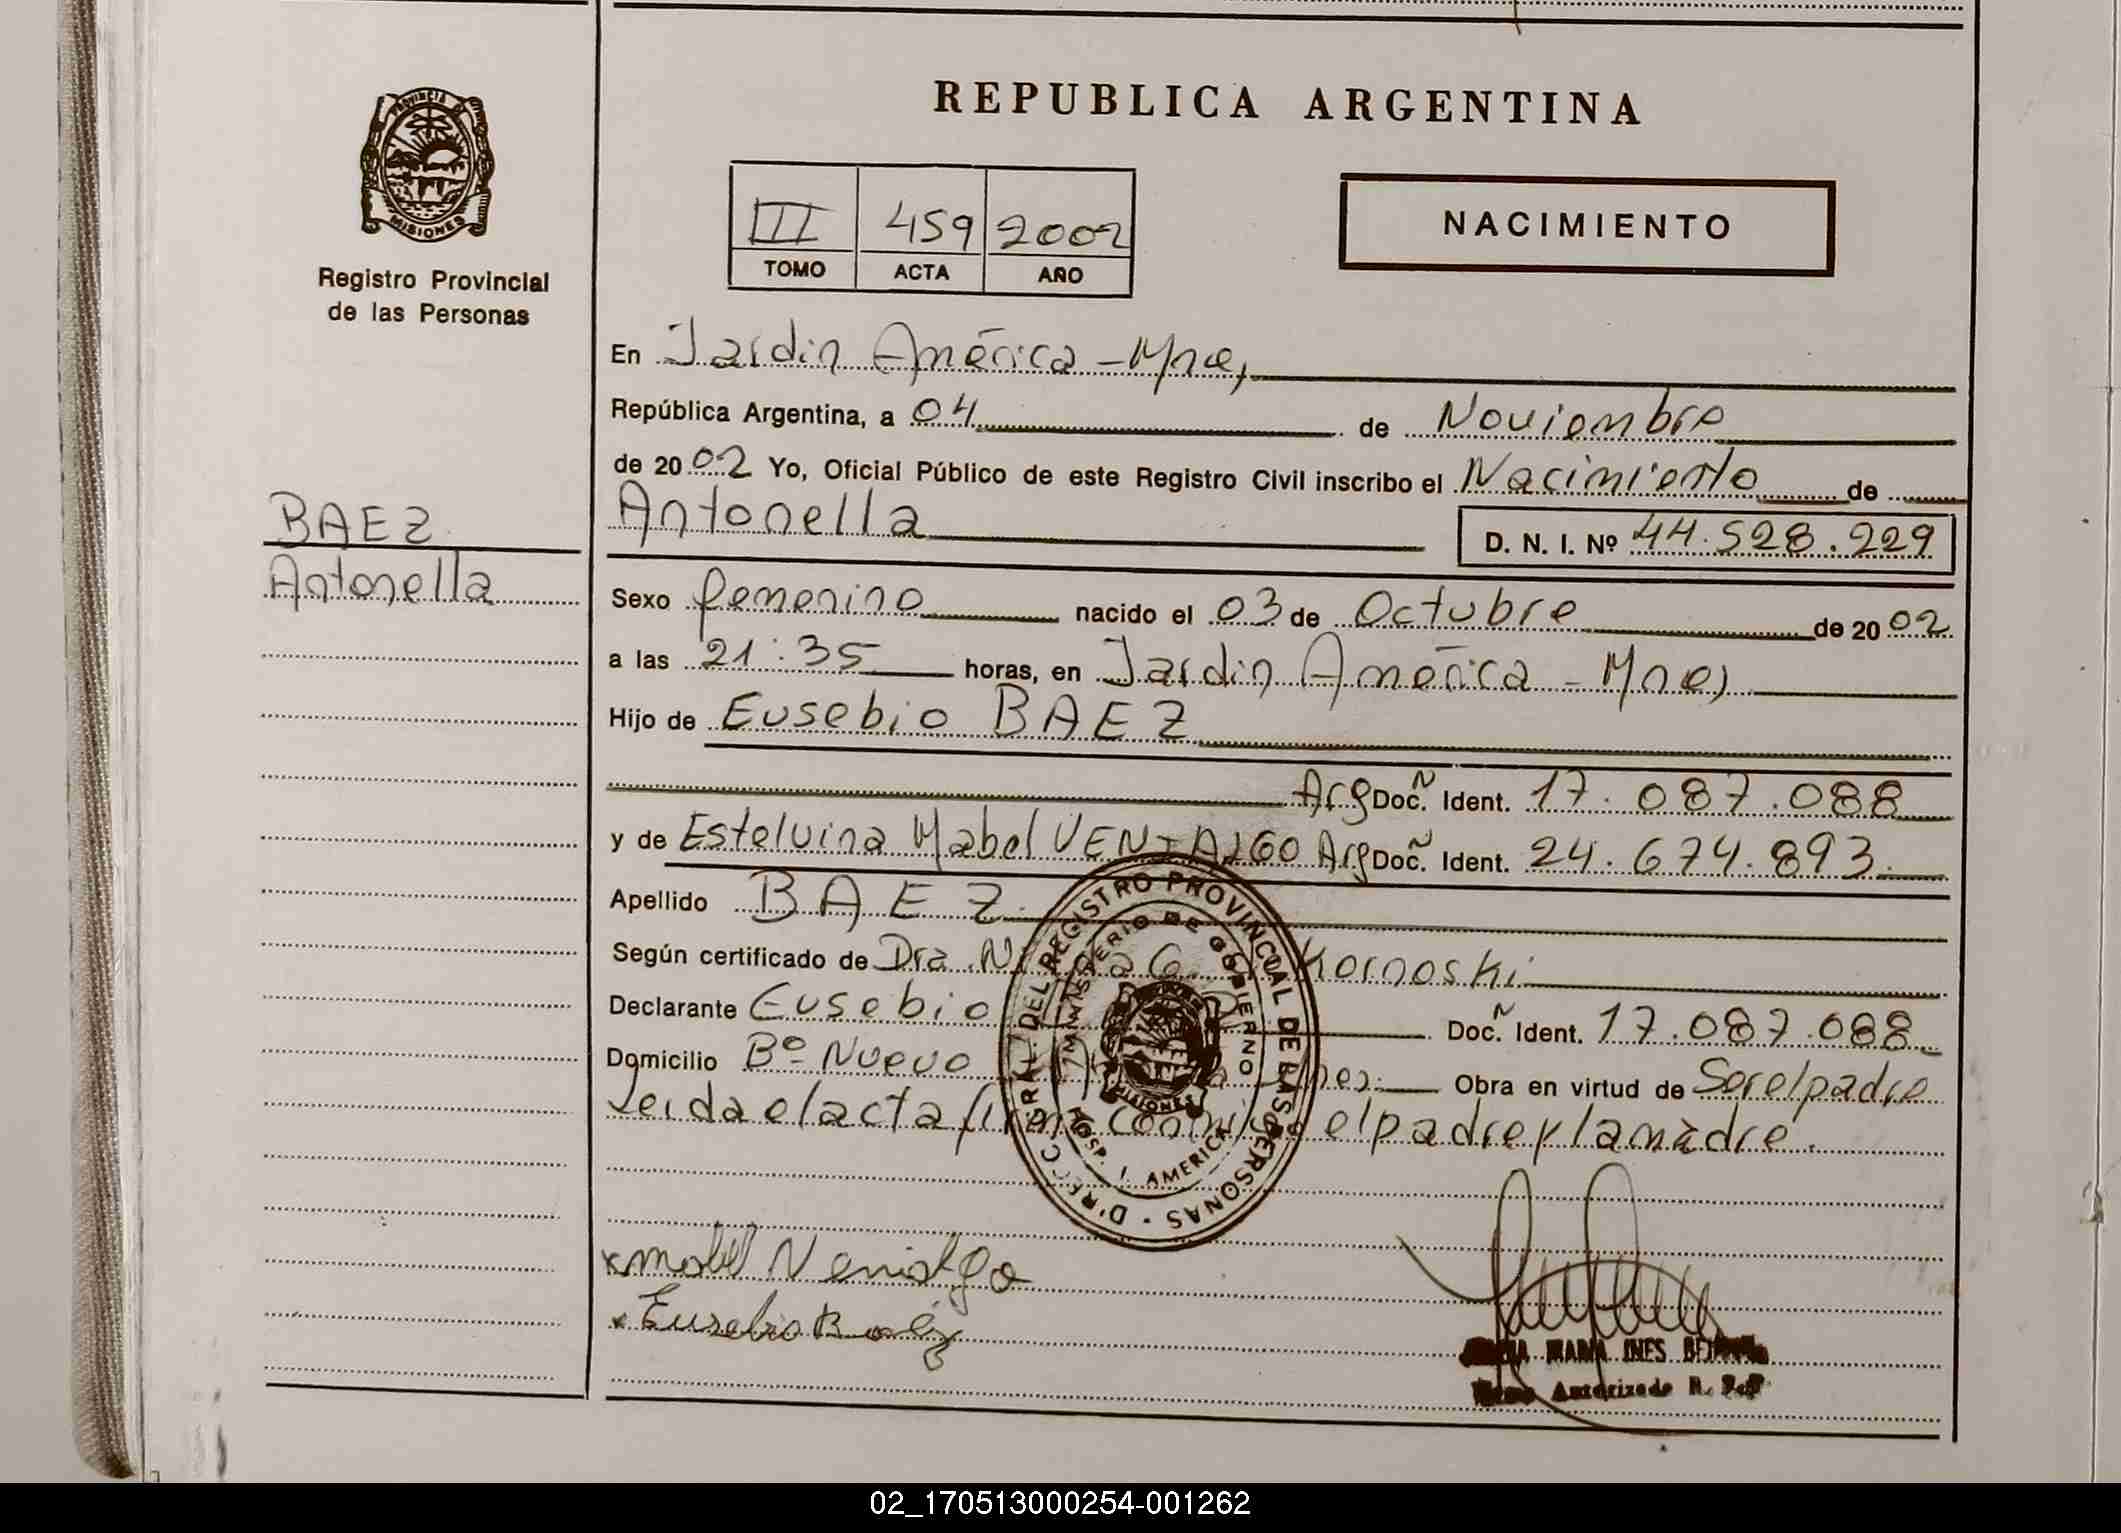 REPUBLICA ARGENTINA
PROVINCIA DE
MISIONES
Registro Provincial
de las Personas
III 459 2002
TOMO ACTA AÑO
NACIMIENTO
En Jardin América - Mnes,
República Argentina, a 04 de Noviembre
de 2002 Yo, Oficial Público de este Registro Civil inscribo el Nacimiento de
BAEZ
Antonella
Antonella D. N. I. Nº 44.528.229
Sexo femenino nacido el 03 de Octubre de 2002
a las 21:35 horas, en Jardin América - Mnes,
Hijo de Eusebio BAEZ
Arg Docñ. Ident. 17.087.088
y de Estelvina Mabel VENIALGO Arg Docñ. Ident. 24.674.893.
Apellido BAEZ
Según certificado de Dra. Kornoski
Declarante Eusebio Docñ. Ident. 17.087.088
Domicilio Bº Nuevo Obra en virtud de Ser el padre
Leida el acta conmigo el padre y la madre.
DIRECC. GRAL. DEL REGISTRO PROVINCIAL DE LAS PERSONAS
MINISTERIO DE GOBIERNO
HOSP. J. AMERICA
MISIONES
x Mabel Venialgo
x Eusebio Baez
MARIA INES
Autorizado R. P. P.
02_170513000254-001262